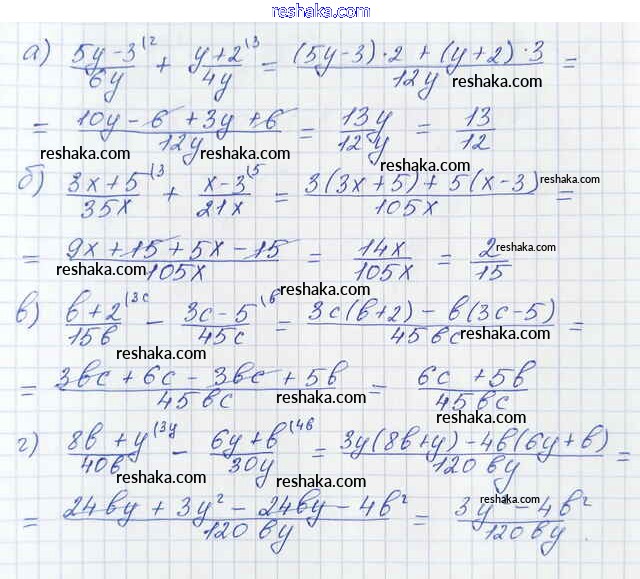 reshaka.com
а) (5y-3)/6y (2 + (y+2)/4y (3 = ((5y-3)·2 + (y+2)·3)/12y =
reshaka.com
= (10y - 6 + 3y + 6)/12y = 13y/12y = 13/12
reshaka.com reshaka.com reshaka.com
б) (3x+5)/35x (3 + (x-3)/21x (5 = (3(3x+5) + 5(x-3))/105x =
reshaka.com reshaka.com
= (9x + 15 + 5x - 15)/105x = 14x/105x = 2/15
reshaka.com reshaka.com reshaka.com
в) (b+2)/15b (3c - (3c-5)/45c (b = (3c(b+2) - b(3c-5))/45bc =
reshaka.com reshaka.com
= (3bc + 6c - 3bc + 5b)/45bc = (6c + 5b)/45bc
reshaka.com reshaka.com
г) (8b+y)/40b (3y - (6y+b)/30y (4b = (3y(8b+y) - 4b(6y+b))/120by =
reshaka.com reshaka.com
= (24by + 3y² - 24by - 4b²)/120by = (3y² - 4b²)/120by.
reshaka.com reshaka.com
reshaka.com